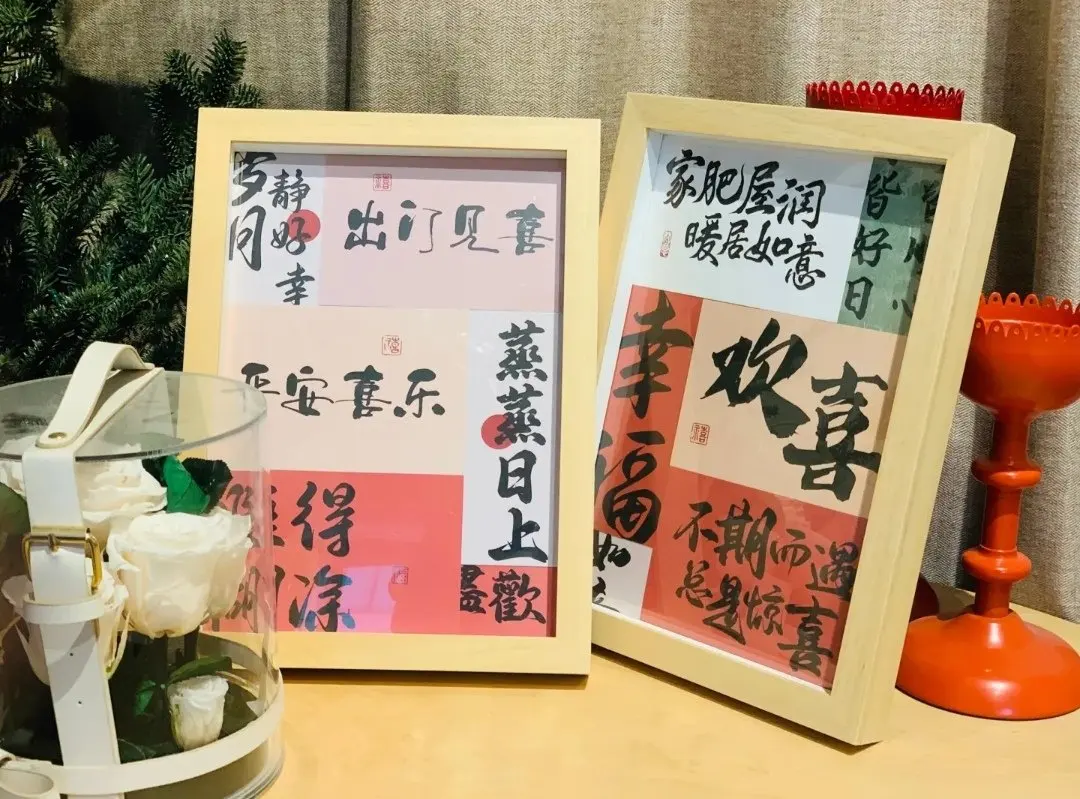 岁月
静好
幸
出门见喜
平安喜乐
蒸蒸日上
得
深
盡歡
家肥屋润
暖居如意
皆
好
日
幸福
欢喜
不期而遇
总是惊喜
如